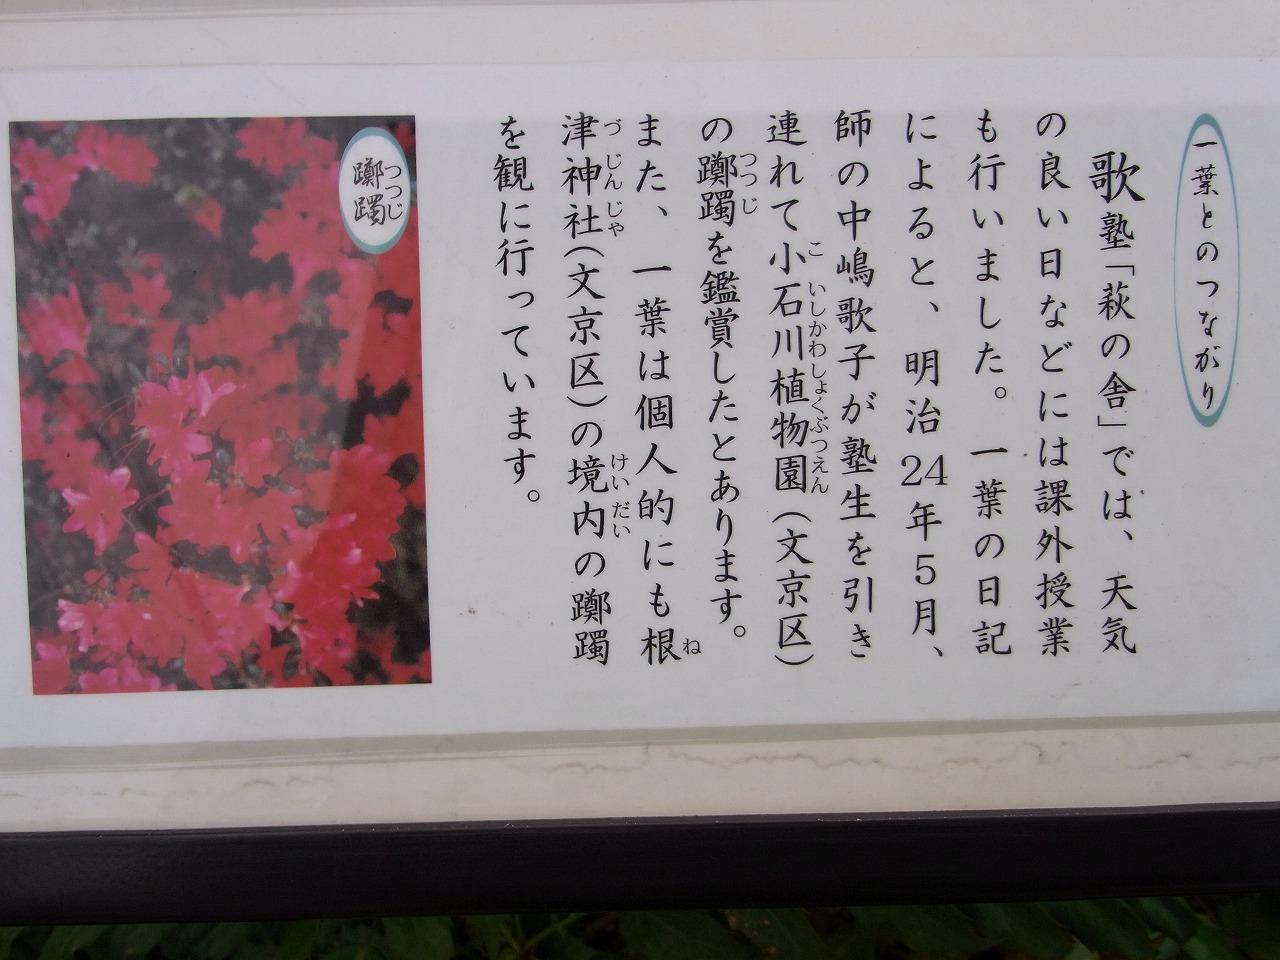 一葉とのつながり
歌塾「萩の舎」では、天気
の良い日などには課外授業
も行いました。一葉の日記
によると、明治24年5月、
師の中嶋歌子が塾生を引き
連れて小石川植物園(文京区)
こ いしかわしょくぶつえん
の躑躅を鑑賞したとあります。
つつじ
また、一葉は個人的にも根
ね
津神社(文京区)の境内の躑躅
づ じん じゃ けい だい
を観に行っています。
躑躅
つつじ